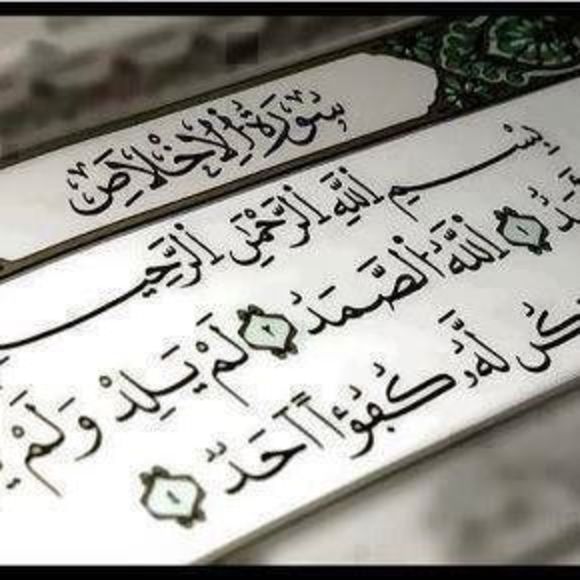 سُورَةُ الْإِخْلَاصِ
بِسْمِ اللَّهِ الرَّحْمَٰنِ الرَّحِيمِ
١ اللَّهُ الصَّمَدُ ٢ لَمْ يَلِدْ وَلَمْ
لَّهُ كُفُؤًا أَحَدٌ